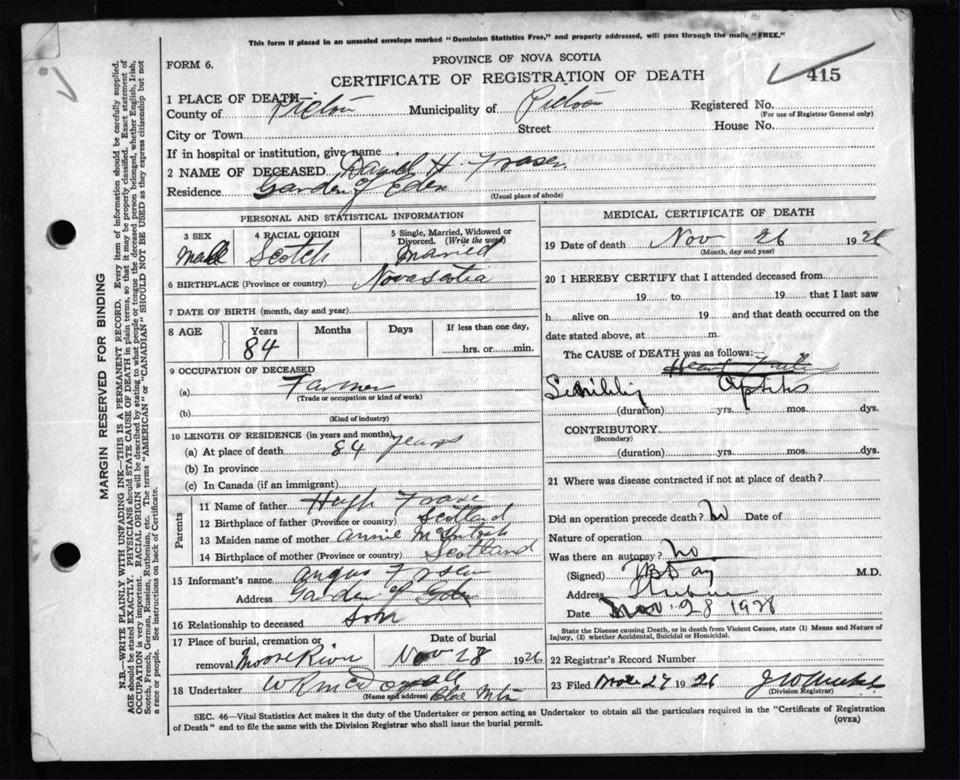 This form if placed in an unsealed envelope marked "Dominion Statistics Free," and properly addressed, will pass through the mails "FREE."
FORM 6.
PROVINCE OF NOVA SCOTIA
CERTIFICATE OF REGISTRATION OF DEATH
415
1 PLACE OF DEATH—
County of Pictou Municipality of Pictou Registered No.
(For use of Registrar General only)
City or Town Street House No.
If in hospital or institution, give name
2 NAME OF DECEASED H. Fraser
Residence Garden of Eden
(Usual place of abode)
PERSONAL AND STATISTICAL INFORMATION
3 SEX 4 RACIAL ORIGIN 5 Single, Married, Widowed or Divorced. (Write the word)
Male Scotch Married
6 BIRTHPLACE (Province or country) Nova Scotia
7 DATE OF BIRTH (month, day and year)
8 AGE Years Months Days If less than one day,
84 hrs. or min.
9 OCCUPATION OF DECEASED
(a) Farmer
(Trade or occupation or kind of work)
(b)
(Kind of industry)
10 LENGTH OF RESIDENCE (in years and months)
(a) At place of death 84 years
(b) In province
(c) In Canada (if an immigrant)
Parents
11 Name of father Hugh Fraser
12 Birthplace of father (Province or country) Scotland
13 Maiden name of mother Annie McIntosh
14 Birthplace of mother (Province or country) Scotland
15 Informant's name Angus Fraser
Address Garden of Eden
16 Relationship to deceased Son
17 Place of burial, cremation or removal Date of burial
Nov 28 1926
18 Undertaker
(Name and address)
MEDICAL CERTIFICATE OF DEATH
19 Date of death Nov 26 192
(Month, day and year)
20 I HEREBY CERTIFY that I attended deceased from
19 to 19 that I last saw
h alive on 19 and that death occurred on the
date stated above, at m.
The CAUSE OF DEATH was as follows:
Heart Failure
Senility
(duration) yrs. mos. dys.
CONTRIBUTORY
(Secondary)
(duration) yrs. mos. dys.
21 Where was disease contracted if not at place of death?
Did an operation precede death? No Date of
Nature of operation
Was there an autopsy? No
(Signed) M.D.
Address
Date Nov 28 192
State the Disease causing Death, or in death from Violent Causes, state (1) Means and Nature of
Injury, (2) whether Accidental, Suicidal or Homicidal.
22 Registrar's Record Number
23 Filed 27 1926
(Division Registrar)
SEC. 46—Vital Statistics Act makes it the duty of the Undertaker or person acting as Undertaker to obtain all the particulars required in the "Certificate of Registration
of Death" and to file the same with the Division Registrar who shall issue the burial permit.
(OVER)
MARGIN RESERVED FOR BINDING
N.B.—WRITE PLAINLY WITH UNFADING INK—THIS IS A PERMANENT RECORD. Every item of information should be carefully supplied.
AGE should be stated EXACTLY. PHYSICIANS should STATE CAUSE OF DEATH in plain terms, so that it may be properly classified. Exact statement of
OCCUPATION is very important. RACIAL ORIGIN will be described by stating to what people or tongue the deceased person belonged, whether English, Irish,
Scotch, French, German, Russian, Ruthenian, etc. The terms "AMERICAN" or "CANADIAN" SHOULD NOT BE USED as they express citizenship but not
a race or people. See instructions on back of Certificate.